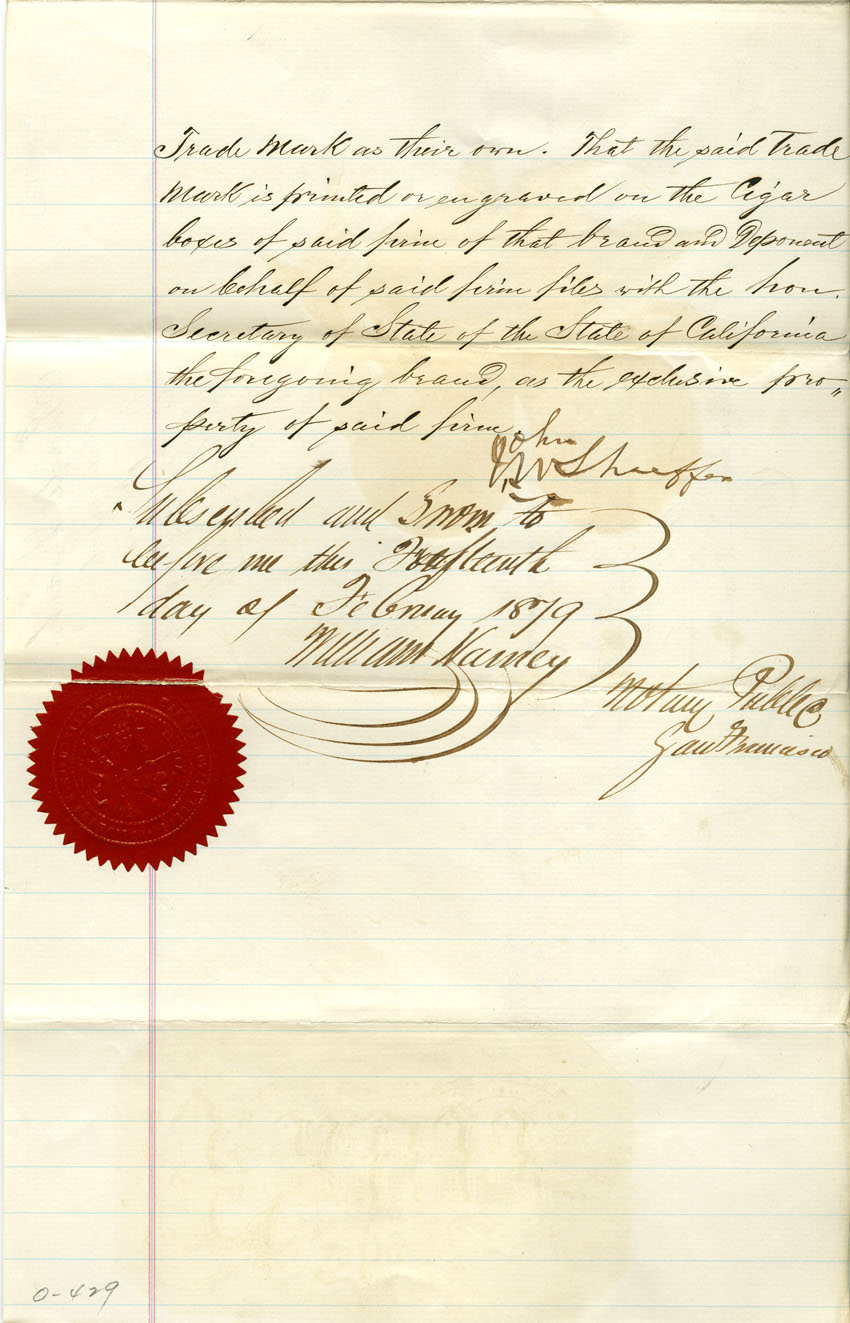 Trade Mark as their own. That the said Trade
Mark is printed or engraved on the Cigar
boxes of said firm of that brand and Deponent
on behalf of said firm files with the hon.
Secretary of State of the State of California
the foregoing brand, as the exclusive pro„
perty of said firm.
John
W Shaeffer
Subscribed and Sworn to
before me this
day of February 1879
William Harney
Notary Public
San Francisco
O-429